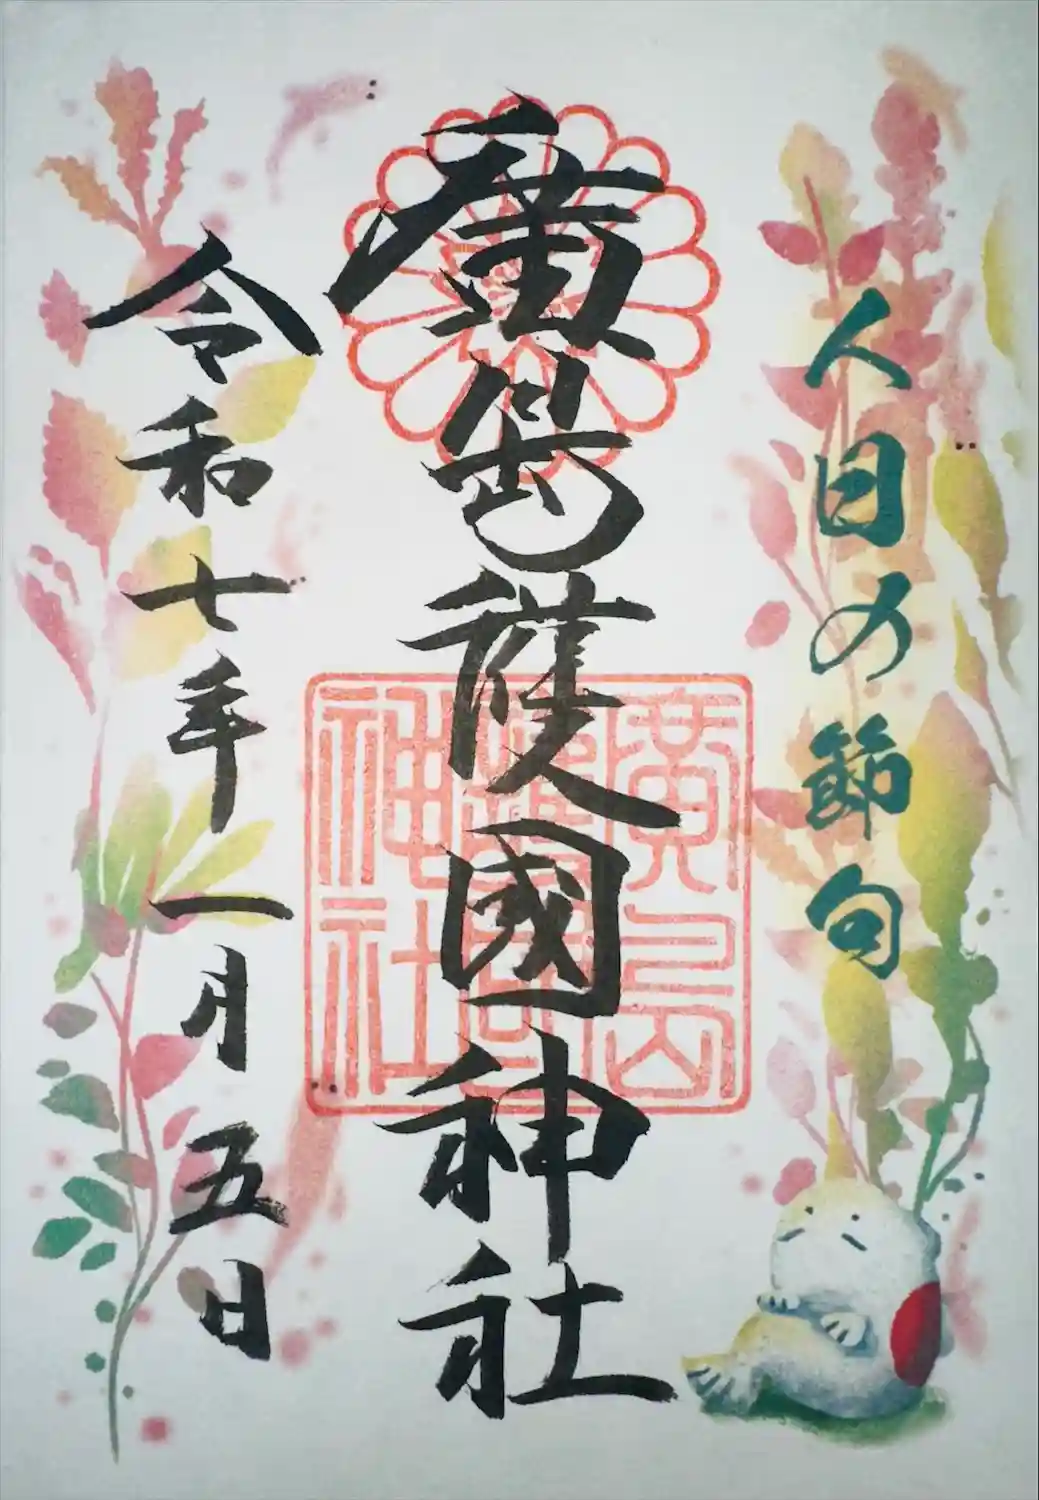 人日の節句
廣島護國神社
廣島
護國
神社
令和七年一月五日